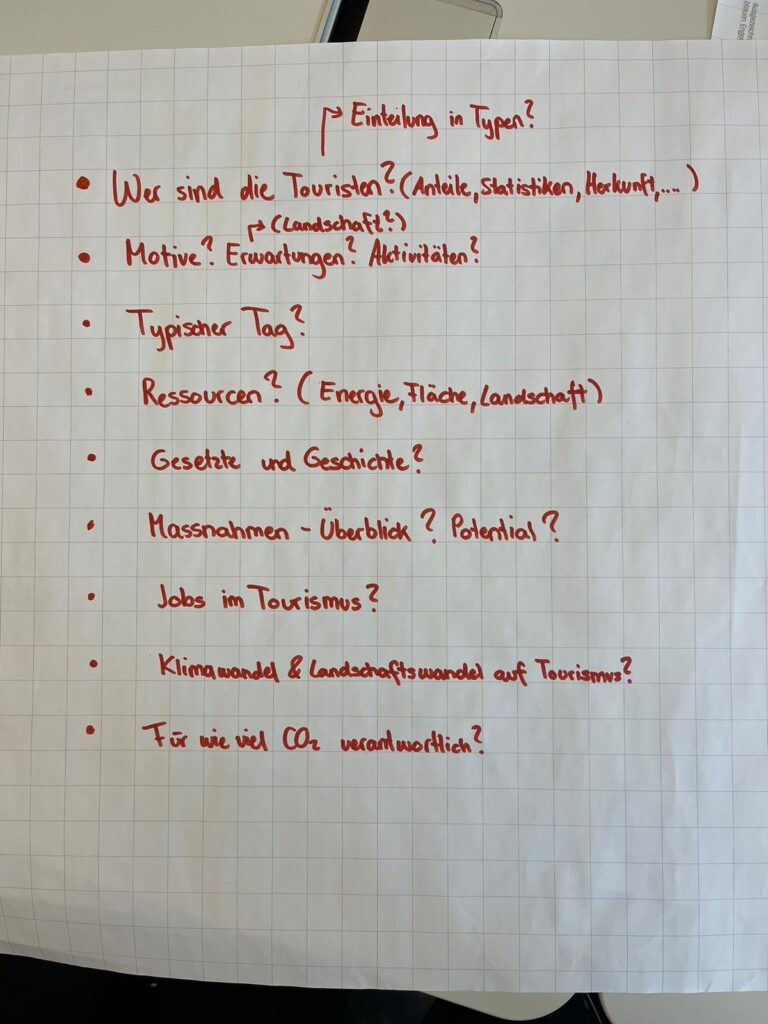 Einteilung in Typen?
• Wer sind die Touristen? (Anteile, Statistiken, Herkunft,....)
(Landschaft?)
• Motive? Erwartungen? Aktivitäten?
• Typischer Tag?
• Ressourcen? (Energie, Fläche, Landschaft)
• Gesetzte und Geschichte?
• Massnahmen - Überblick? Potential?
• Jobs im Tourismus?
• Klimawandel & Landschaftswandel auf Tourismus?
• Für wie viel CO₂ verantwortlich?